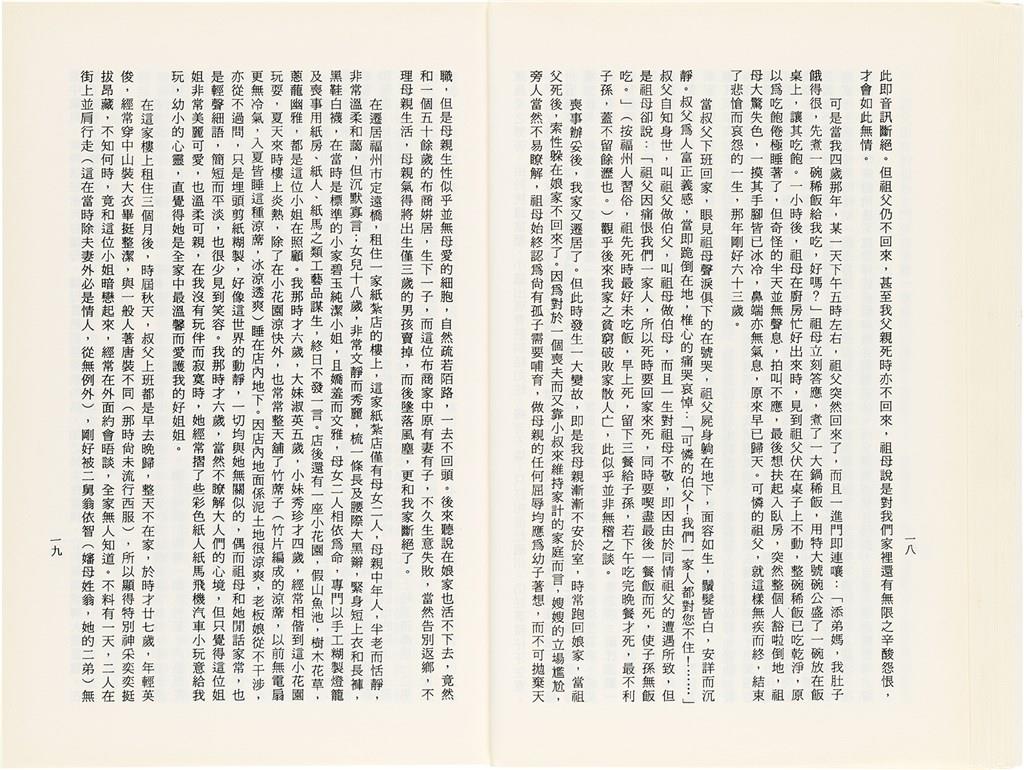 此即音訊斷絕。但祖父仍不回來，甚至我父親死時亦不回來，祖母說是對我們家裡還有無限之辛酸怨恨，
才會如此無情。
可是當我四歲那年，某一天下午五時左右，祖父突然回來了，而且一進門即連嚷：「添弟媽，我肚子
餓得很，先煮一碗稀飯給我吃，好嗎？」祖母立刻答應，煮了一大鍋稀飯，用特大號碗公盛了一碗放在飯
桌上，讓其吃飽。一小時後，祖母在廚房忙好出來時，見到祖父伏在桌子上不動，整碗稀飯已吃乾淨，原
以為吃飽倦極睡著了，但奇怪的半天並無聲息，拍叫不應，最後想扶起入臥房，突然整個人豁啦倒地，祖
母大驚失色，一摸其手腳皆已冰冷，鼻端亦無氣息，原來早已歸天。可憐的祖父，就這樣無疾而終，結束
了悲愴而哀怨的一生，那年剛好六十三歲。
當叔父下班回家，眼見祖母聲淚俱下的在號哭，祖父屍身躺在地下，面容如生，鬚髮皆白，安詳而沉
靜。叔父為人富正義感，當即跪倒在地，椎心的痛哭哀悼：「可憐的伯父！我們一家人都對您不住！……」
叔父自知身世，叫祖父做伯父，叫祖母做伯母，而且一生對祖母不敬，即因由於同情祖父的遭遇所致，但
是祖母卻說：「祖父因痛恨我們一家人，所以死時要回家來死，同時要喫盡最後一餐飯而死，使子孫無飯
吃。」（按福州人習俗，祖先死時最好未吃飯，早上死，留下三餐給子孫，若下午吃完晚餐才死，最不利
子孫，蓋不留餘瀝也。）觀乎後來我家之貧窮破敗家散人亡，此似乎並非無稽之談。
喪事辦妥後，我家又遷居了。但此時發生一大變故，即是我母親漸漸不安於室，時常跑回娘家，當祖
父死後，索性躲在娘家不回來了。因為對於一個喪夫而又靠小叔來維持家計的家庭而言，嫂嫂的立場尷尬，
旁人當然不易瞭解，祖母始終認為尚有孤子需要哺育，做母親的任何屈辱均應為幼子著想，而不可拋棄天
一八
職，但是母親生性似乎並無母愛的細胞，自然疏若陌路，一去不回頭。後來聽說在娘家也活不下去，竟然
和一個五十餘歲的布商姘居，生下一子，而這位布商家中原有妻有子，不久生意失敗，當然告別返鄉，不
理母親生活，母親氣得將出生僅三歲的男孩賣掉，而後墜落風塵，更和我家斷絕了。
在遷居福州市定遠橋，租住一家紙紮店的樓上，這家紙紮店僅有母女二人，母親中年人，半老而恬靜，
非常溫柔和藹，但沉默寡言；女兒十八歲，非常文靜而秀麗，梳一條長及腰際大黑辮，緊身短上衣和長褲，
黑鞋白襪，在當時是標準的小家碧玉純潔小姐，且嬌羞而文雅，母女二人相依為命，專門以手工糊製燈籠
及喪事用紙房、紙人、紙馬之類工藝品謀生，終日不發一言。店後還有一座小花園，假山魚池，樹木花草，
蔥蘢幽雅，都是這位小姐在照顧。我那時才六歲，大妹淑英五歲，小妹秀珍才四歲，經常相偕到這小花園
玩耍，夏天來時樓上炎熱，除了在小花園涼快外，也常常整天舖了竹蓆子（竹片編成的涼蓆，以前無電扇
更無冷氣，入夏皆睡這種涼蓆，冰涼透爽）睡在店內地下。因店內地面係泥土地很涼爽，老板娘從不干涉，
亦從不過問，只是埋頭剪紙糊製，好像這世界的動靜，一切均與她無關似的，偶而祖母和她閒話家常，也
是輕聲細語，簡短而平淡，也很少見到笑容。我那時才六歲，當然不瞭解大人們的心境，但只覺得這位姐
姐非常美麗可愛，也溫柔可親，在我沒有玩伴而寂寞時，她經常摺了些彩色紙人紙馬飛機汽車小玩意給我
玩，幼小的心靈，直覺得她是全家中最溫馨而愛護我的好姐姐。
在這家樓上租住三個月後，時屆秋天，叔父上班都是早去晚歸，整天不在家，於時才廿七歲，年輕英
俊，經常穿中山裝大衣畢挺整潔，與一般人著唐裝不同（那時尚未流行西服），所以顯得特別神采奕奕挺
拔昂藏，不知何時，竟和這位小姐暗戀起來，經常在外面約會晤談，全家無人知道。不料有一天，二人在
街上並肩行走（這在當時除夫妻外必是情人，從無例外），剛好被二舅翁依智（嬸母姓翁，她的二弟）無
一九